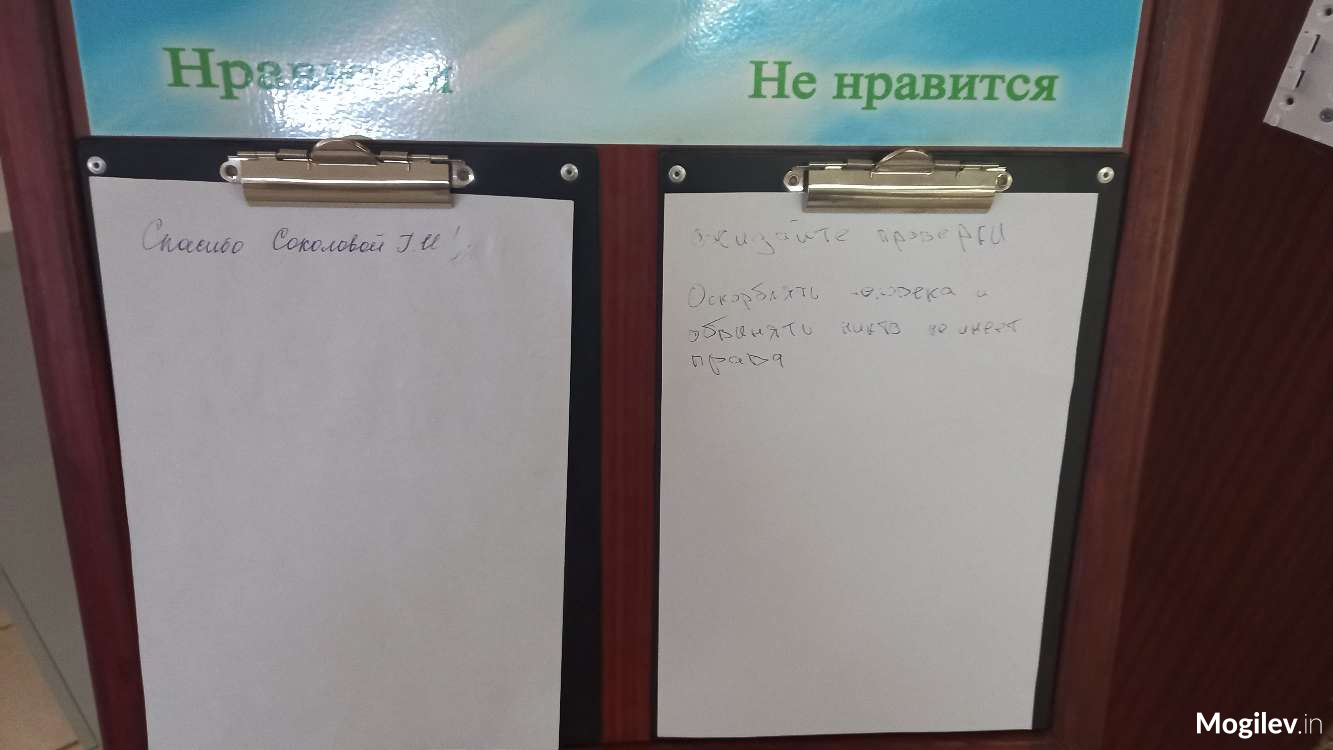 Нравится
Не нравится
Спасибо Соколовой Г.И!
Ожидайте проверки
Оскорблять человека и
обвинять никто не имеет
права
Mogilev.in